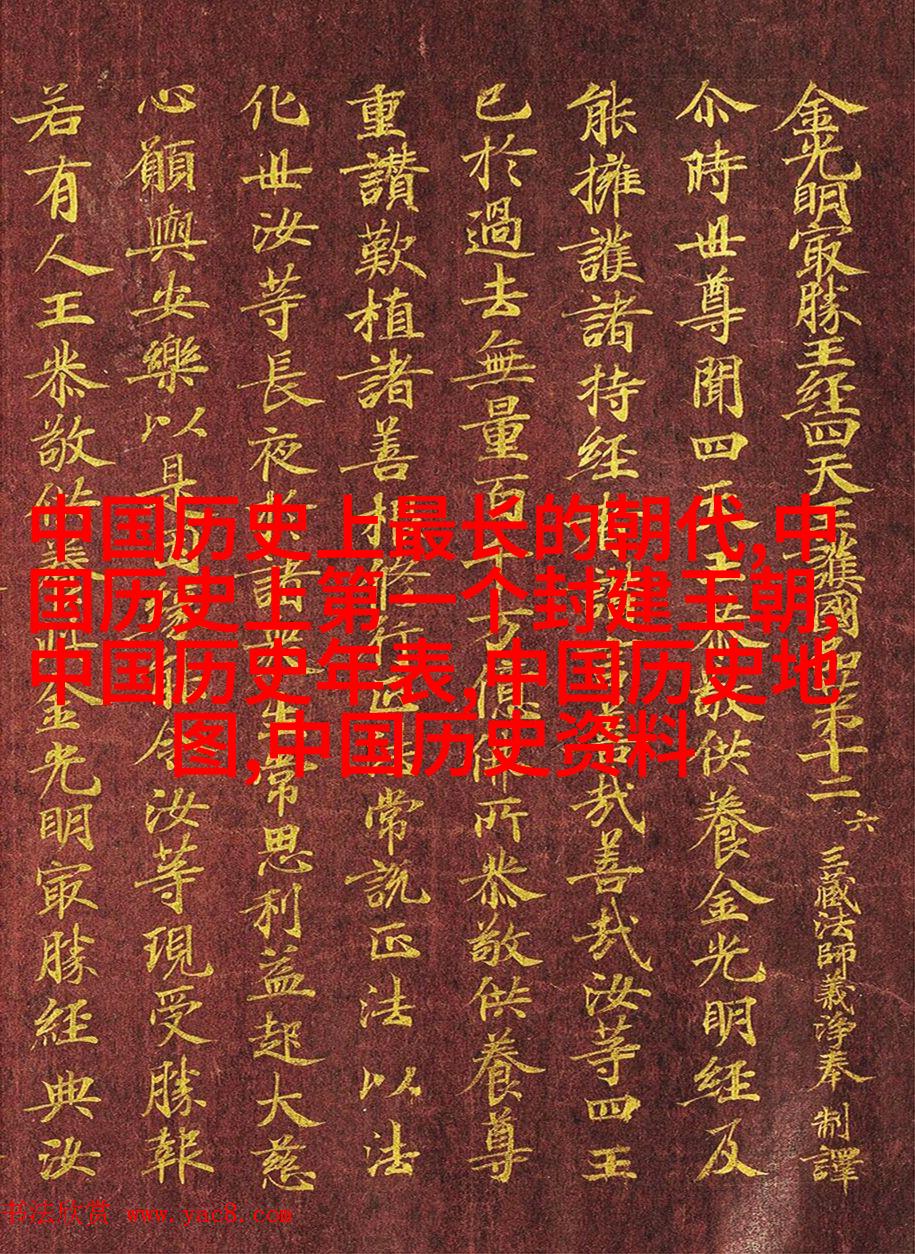 金光明冣勝王経四天王護國品第十二 六 三藏法師義淨奉 制譯
尒時世尊聞四天王恭敬供養金光明経及
能擁護諸持経善哉善哉汝等四王
已於過去無量百千億佛所恭敬供養尊
重讃歎植諸善根修行正常說正法以法
化世汝等長夜諸生常思利益起大慈
心願與安樂以是令汝等現受勝報
若有人王恭敬供養金光明冣勝経典汝
中国历史上最长的朝代,中
国历史上第一个封建王朝,
中国历史年表,中国历史地
图,中国历史资料
书法欣赏 www.yac8.com